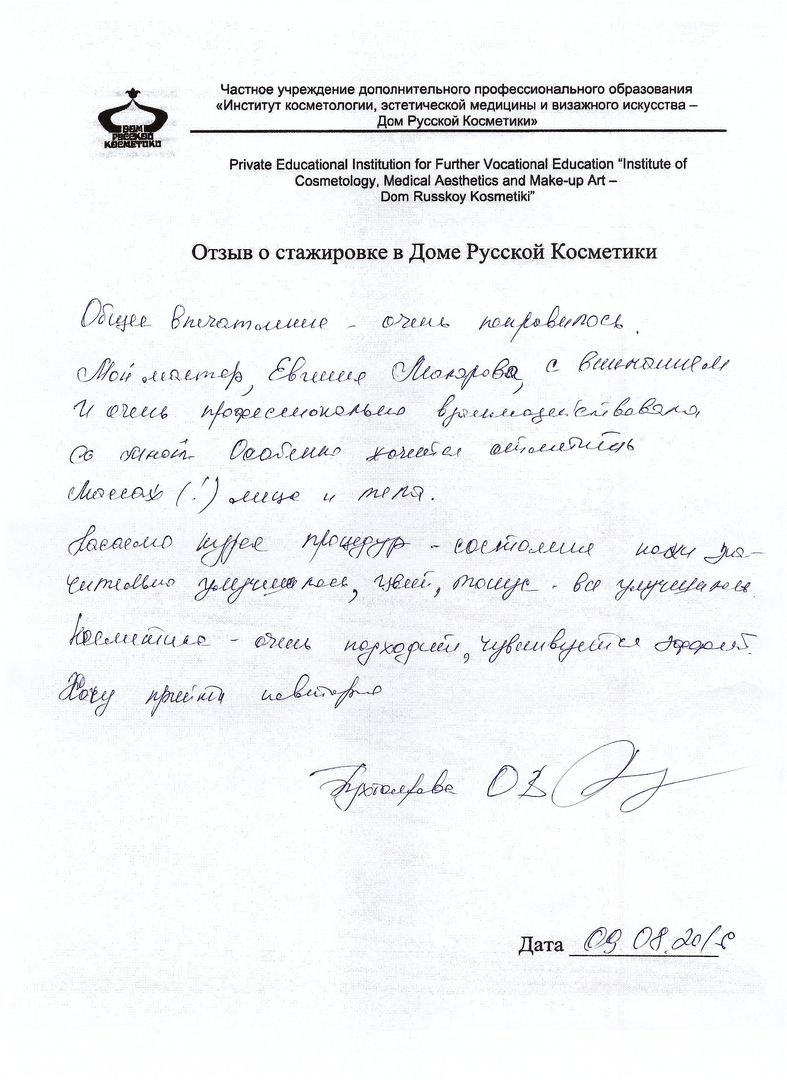 ДОМ
РУССКОЙ
КОСМЕТИКИ
Частное учреждение дополнительного профессионального образования
«Институт косметологии, эстетической медицины и визажного искусства –
Дом Русской Косметики»
Private Educational Institution for Further Vocational Education “Institute of
Cosmetology, Medical Aesthetics and Make-up Art –
Dom Russkoy Kosmetiki”
Отзыв о стажировке в Доме Русской Косметики
Общее впечатление - очень понравилось.
Мой мастер, Евгения Макарова, с вниманием
и очень профессионально взаимодействовала
со мной. Особенно хочется отметить
массаж (!) лица и тела.
Касаемо курса процедур - состояние кожи зна-
чительно улучшилось, цвет, тонус - все улучшилось.
Косметика - очень подходит, чувствуется эффект.
Хочу прийти повторно
О В
Дата 09.08.2018